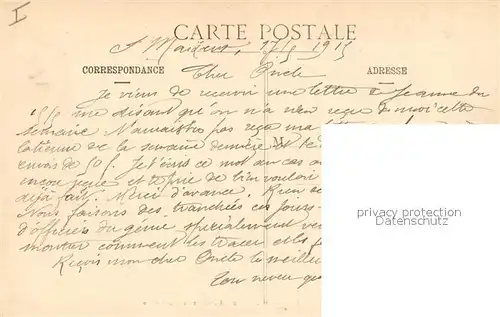 I
CARTE POSTALE
St Maixent, 17/5 1915
CORRESPONDANCE
ADRESSE
Cher Oncle
Je viens de recevoir une lettre de Jeanne du
15/5 me disant qu'on n'a rien reçu de moi cette
semaine. N'aurais-tu pas reçu ma
de la semaine dernière et
envoi de 50f. Je t'écris ce mot au cas où
et te prie de bien vouloir
déjà fait. Merci d'avance. Rien de
Nous faisons des tranchées ces jours-
d'officiers du génie spécialement
montrer comment les tracer et les
Reçois mon cher Oncle le meilleur
Ton neveu
privacy protection
Datenschutz